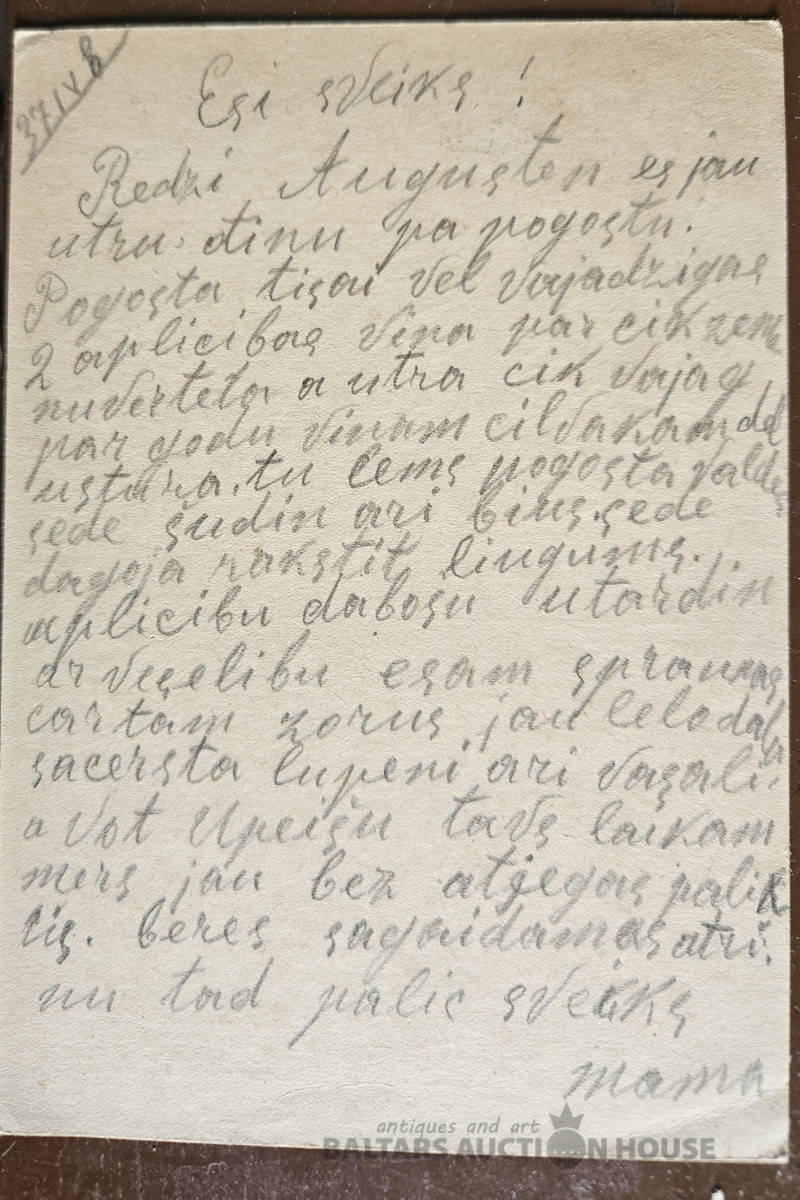 37 IV 8
Esi sveiks !
Redzi Augusten es jau
utru dinu pa pogostu.
Pogosta tisai vel vajadzigas
2 aplicibas vina par cik zeme
nuverteta a utra cik vajag
par godu vinam cilvakam del
ustura. tu lems pogosta valdes
sede šudin ari bius. sede
dagoja rakstit liugums.
aplicibu dabosu utardin
ar veselibu esam
cartam zorus jau lelo
sacersta lupeni ari vasali.
a vot Upeišu tavs laikam
mers jau bez atjegas palik
sis. beres sagaidamas atri.
nu tad palic sveiks
mama
antiques and art
BALTARS AUCTION HOUSE